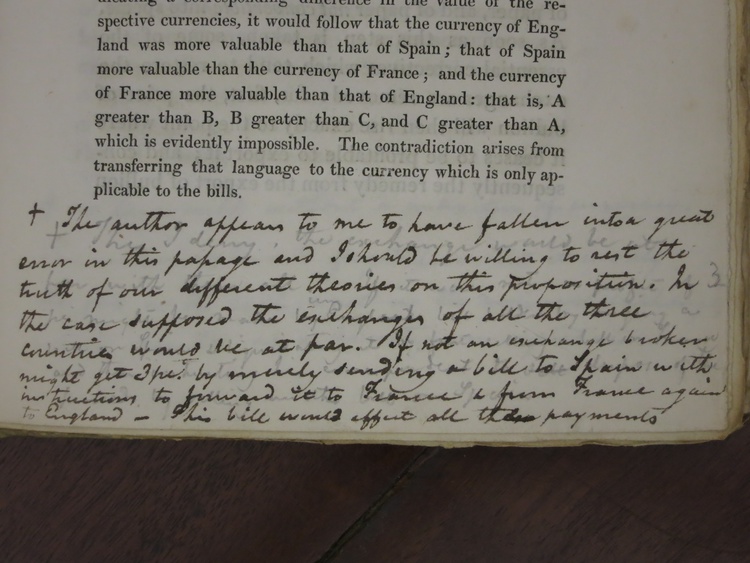 spective currencies, it would follow that the currency of Eng-
land was more valuable than that of Spain; that of Spain
more valuable than the currency of France; and the currency
of France more valuable than that of England: that is, A
greater than B, B greater than C, and C greater than A,
which is evidently impossible. The contradiction arises from
transferring that language to the currency which is only ap-
plicable to the bills.
† The author appears to me to have fallen into a great
error in this passage and I should be willing to rest the
truth of our different theories on this proposition. In
the case supposed the exchanges of all the three
countries would be at par. If not an exchange broker
might get 3 pct. by merely sending a bill to Spain with
instructions to forward it to France & from France again
to England – This bill would effect all these payments